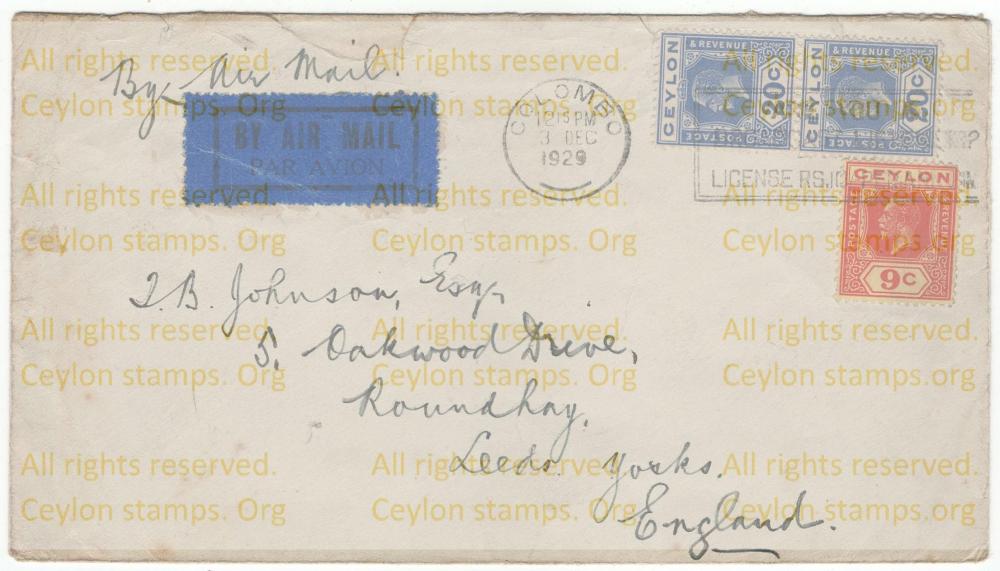 By Air Mail.
BY AIR MAIL
PAR AVION
COLOMBO
12.15 PM
3 DEC
1929
CEYLON
& REVENUE
POSTAGE
20c
CEYLON
& REVENUE
POSTAGE
20c
YOU
LICENSE
CEYLON
POSTAGE
REVENUE
9c
J.B. Johnson, Esq.
5. Oakwood Drive,
Roundhay.
Leeds. Yorks.
England.
All rights reserved. All rights reserved. All rights reserved.
Ceylon stamps. Org Ceylon stamps. Org Ceylon stamps. Org
All rights reserved. All rights reserved. All rights reserved.
Ceylon stamps. Org Ceylon stamps. Org Ceylon stamps. Org
All rights reserved. All rights reserved. All rights reserved.
Ceylon stamps. Org Ceylon stamps. Org Ceylon stamps. Org
All rights reserved. All rights reserved. All rights reserved.
Ceylon stamps. Org Ceylon stamps. Org Ceylon stamps. Org